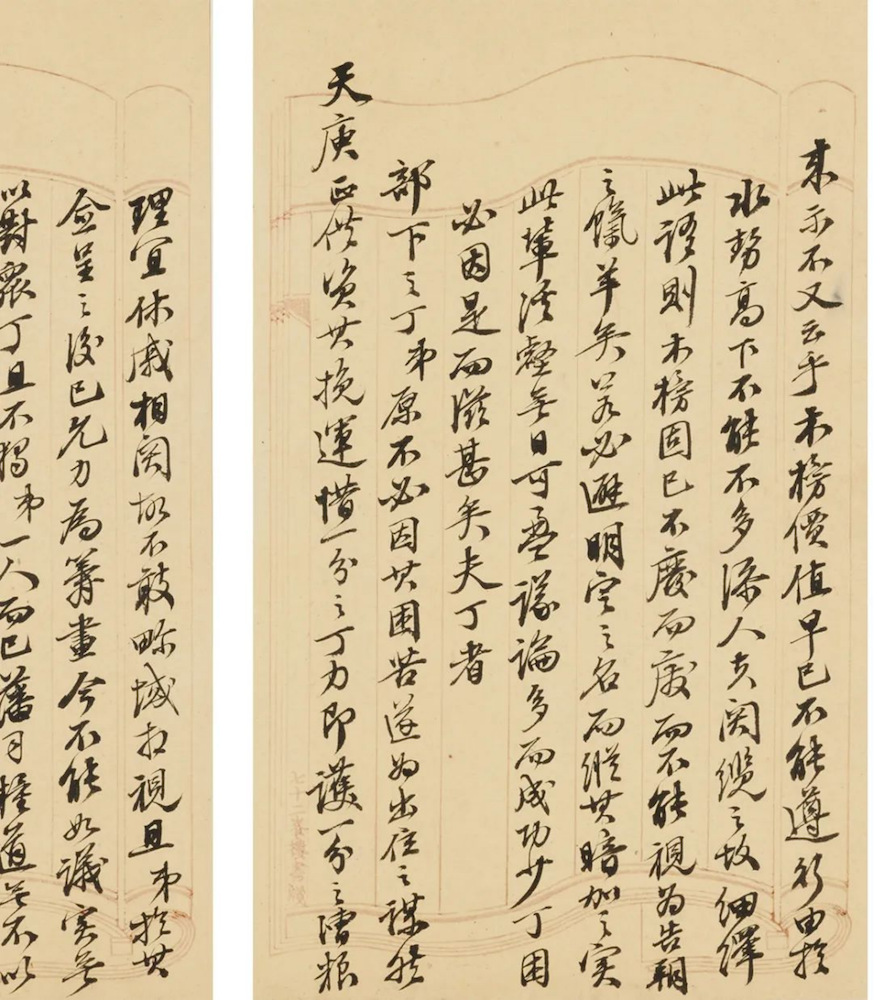 來示不又云乎木榜價值早已不能遵行由於
水勢高下不能不多添人夫關纜之故細繹
此語則木榜固已不廢而廢而不能視為告朔
之餼羊矣若必避明定之名而縱其暗加之實
此輩谿壑無日可盈議論多而成功少丁困
必因是而滋甚矣夫丁者
部下之丁弟原不必因其困苦遂為出位之謀然
天庾正供資其挽運惜一分之丁力即護一分之漕糧
理宜休戚相関故不敢畛域相視且弟於其
僉呈之後已允力為籌畫今不能如議实無
以對眾丁且不獨弟一人而已藩司糧道無不以